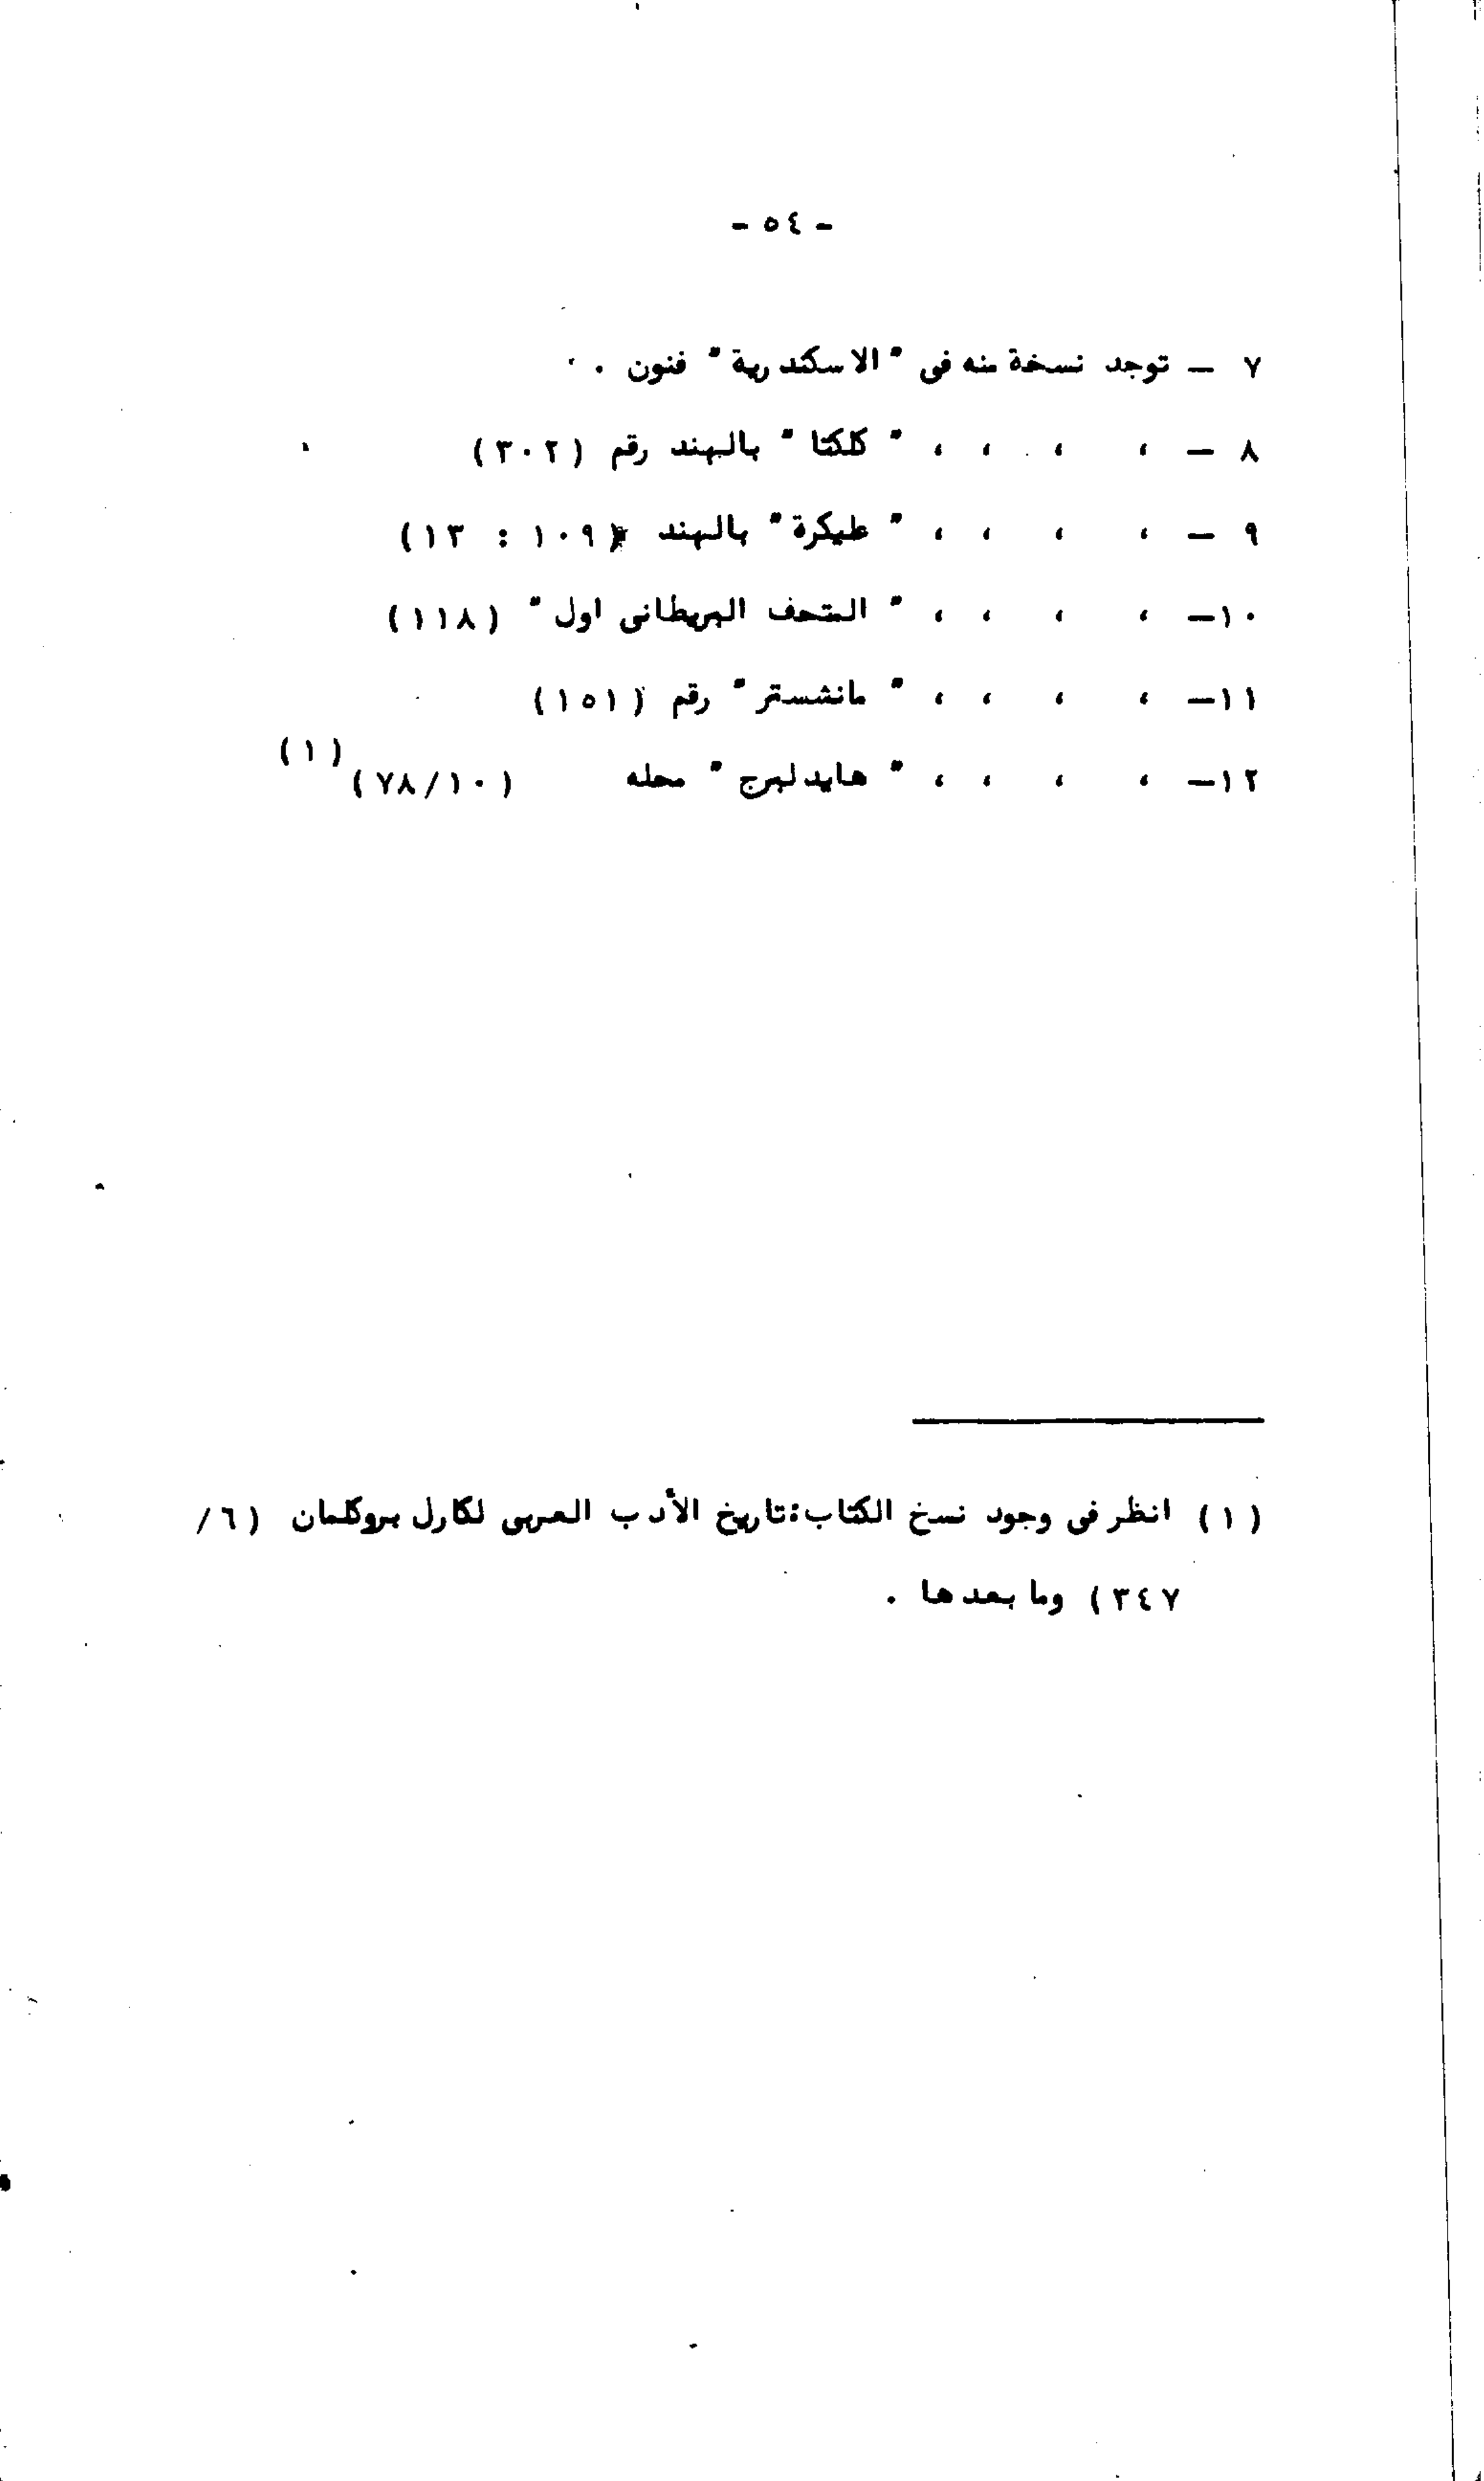 - ٥٤ -
٧ - توجد نسخة منه فى " الاسكندرية " فنون .
٨ - ، ، ، ، " كلكتا " بالهند رقم (٣٠٢)
٩ - ، ، ، ، " عليكرة " بالهند (١٠٩ : ١٣)
١٠- ، ، ، ، " المتحف البريطانى اول " (١١٨)
١١- ، ، ، ، " مانشستر " رقم (١٥١)
١٢- ، ، ، ، " هايدلبرج " محله (٧٨/١٠) (١)
(١) انظر فى وجود نسخ الكتاب : تاريخ الأدب العربى لكارل بروكلمان (٦/
٣٤٧) وما بعدها .